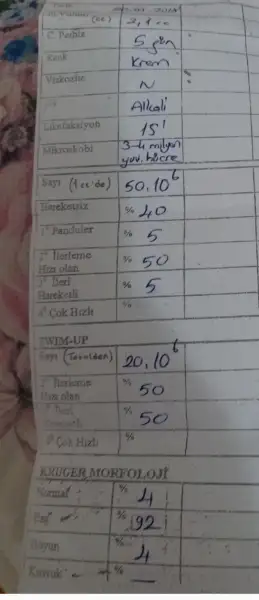 (cc) 2,8 cc
C. Perhiz 5 gün
Renk Krem
Viskozite N
Alkali
Likefaksiyon 15'
Mikroskobi 3-4 milyon
yuv. hücre
Sayı (1 cc'de) 50.10⁶
Hareketsiz % 40
1° Panduler % 5
2° İlerleme % 50
Hızı olan
3° İleri % 5
Hareketli
4° Çok Hızlı %
SWIM-UP
Sayı (Totalden) 20.10⁶
2° İlerleme % 50
Hızı olan
3° İleri % 50
4° Çok Hızlı %
KRUGER MORFOLOJİ
Normal % 4
Baş % 92
Boyun % 4
Kuyruk % —